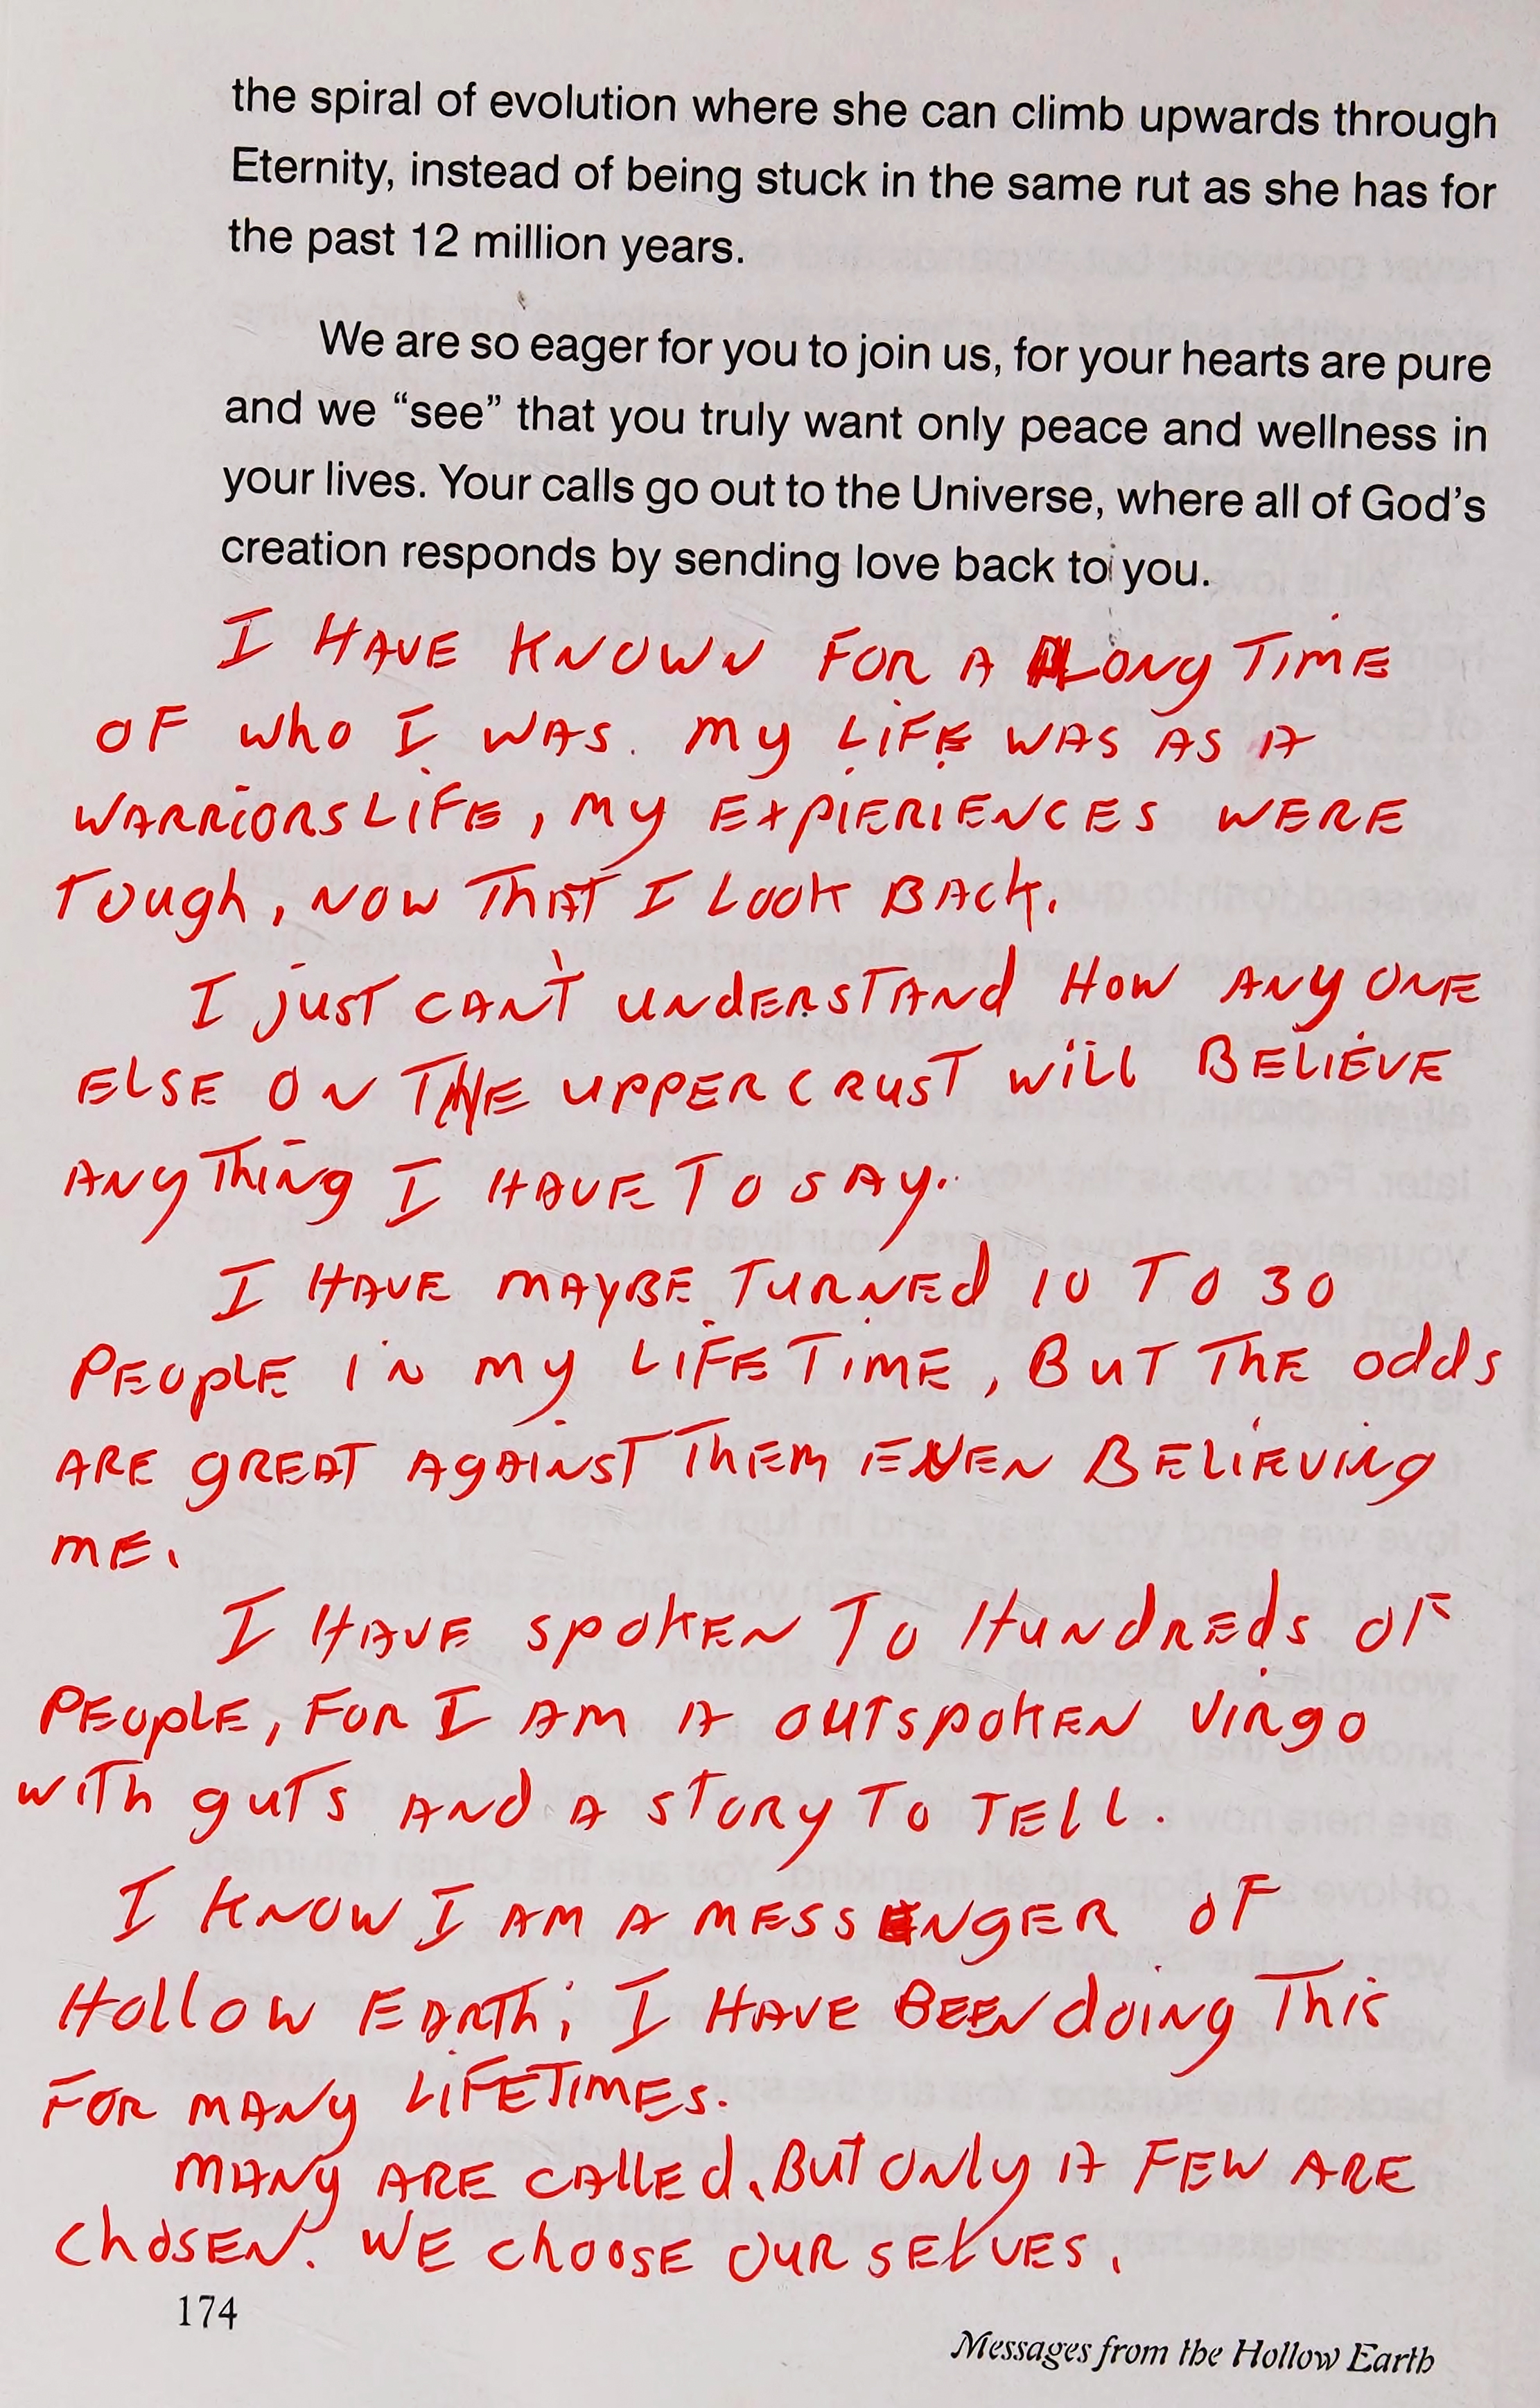 the spiral of evolution where she can climb upwards through
Eternity, instead of being stuck in the same rut as she has for
the past 12 million years.
We are so eager for you to join us, for your hearts are pure
and we “see” that you truly want only peace and wellness in
your lives. Your calls go out to the Universe, where all of God's
creation responds by sending love back to you.
I HAVE KNOWN FOR A LONG TIME
OF WHO I WAS. MY LIFE WAS AS A
WARRIORS LIFE, MY EXPIERIENCES WERE
TOUGH, NOW THAT I LOOK BACK.
I JUST CAN'T UNDERSTAND HOW ANYONE
ELSE ON THE UPPER CRUST WILL BELIEVE
ANYTHING I HAVE TO SAY.
I HAVE MAYBE TURNED 10 TO 30
PEOPLE IN MY LIFE TIME, BUT THE ODDS
ARE GREAT AGAINST THEM EVEN BELIEVING
ME.
I HAVE SPOKEN TO HUNDREDS OF
PEOPLE, FOR I AM A OUTSPOKEN VIRGO
WITH GUTS AND A STORY TO TELL.
I KNOW I AM A MESSENGER OF
HOLLOW EARTH; I HAVE BEEN DOING THIS
FOR MANY LIFETIMES.
MANY ARE CALLED, BUT ONLY A FEW ARE
CHOSEN. WE CHOOSE OURSELVES.
174
Messages from the Hollow Earth